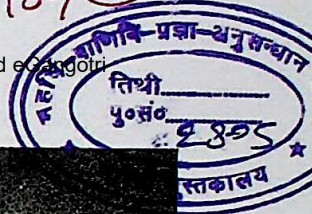 d eGangotri
महर्षि पाणिनि-प्रज्ञा-अनुसन्धान
तिथी
पु०सं०
2805
स्तकालय